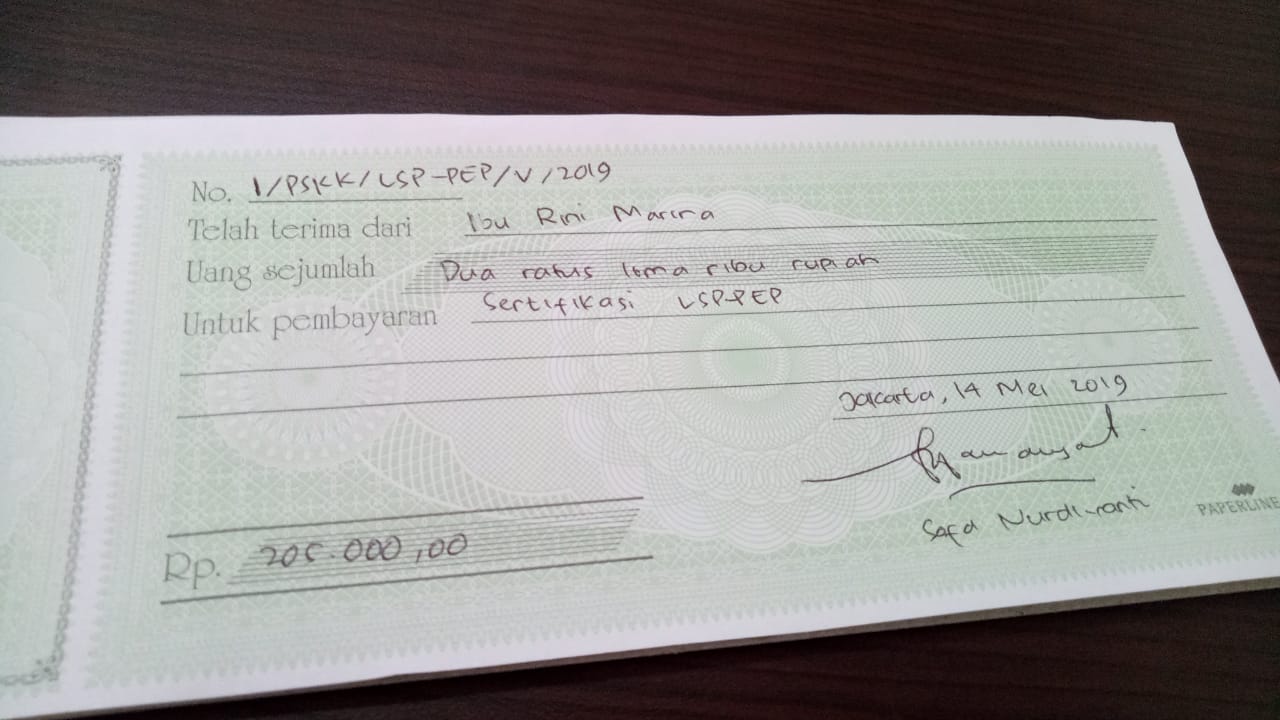 No. 1/PSKK/LSP-PEP/V/2019
Telah terima dari Ibu Rini Marina
Uang sejumlah Dua ratus lima ribu rupiah
Untuk pembayaran Sertifikasi LSP-PEP
Jakarta, 14 Mei 2019
Nurdiyanti
PAPERLINE
Rp. 205.000,00